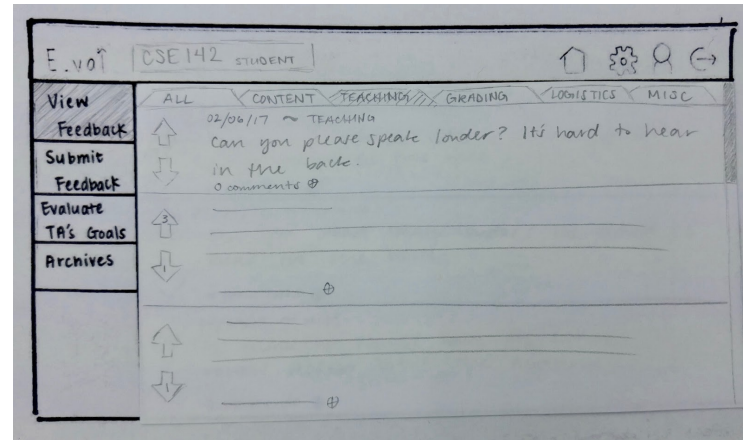 E.voi CSE142 STUDENT
View
Feedback
Submit
Feedback
Evaluate
TA's Goals
Archives
ALL CONTENT TEACHING GRADING LOGISTICS MISC
02/06/17 ~ TEACHING
Can you please speak louder? It's hard to hear
in the back.
0 comments
3
1
1